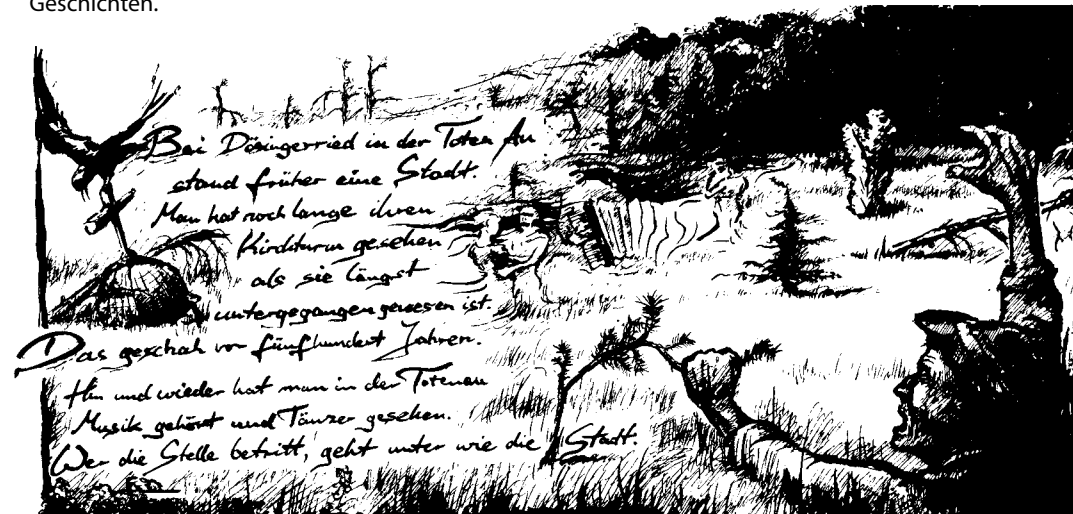 Geschichten.
Bei Dösingerried in der Toten Au
stand früher eine Stadt.
Man hat noch lange ihren
Kirchturm gesehen
als sie längst
untergegangen gewesen ist.
Das geschah vor fünfhundert Jahren.
Hin und wieder hat man in der Totenau
Musik gehört und Tänzer gesehen.
Wer die Stelle betritt, geht unter wie die Stadt.